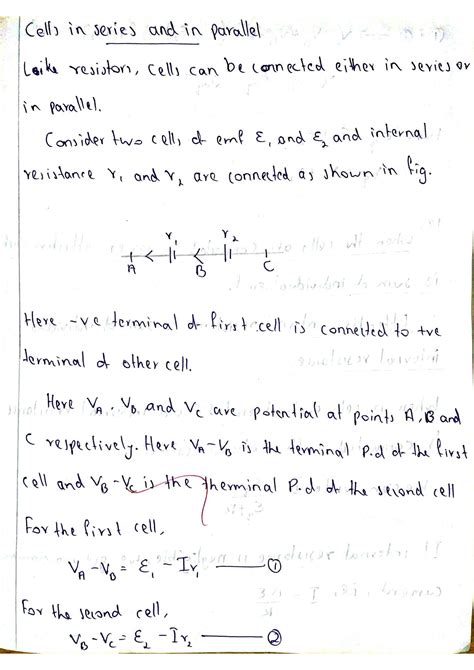 Cells in series and in parallel
Loike resistors, cells can be connected either in series or
in parallel.
Consider two cells of emf ε₁ and ε₂ and internal
resistance r₁ and r₂ are connected as shown in fig.
r₁ r₂
A B C
Here -ve terminal of first cell is connected to +ve
terminal of other cell.
Here V_A, V_B and V_C are potential at points A, B and
C respectively. Here V_A-V_B is the terminal P.d of the first
cell and V_B-V_C is the therminal P.d of the second cell
For the first cell,
V_A-V_B = ε₁ - Ir₁ ①
For the second cell,
V_B-V_C = ε₂ - Ir₂ ②